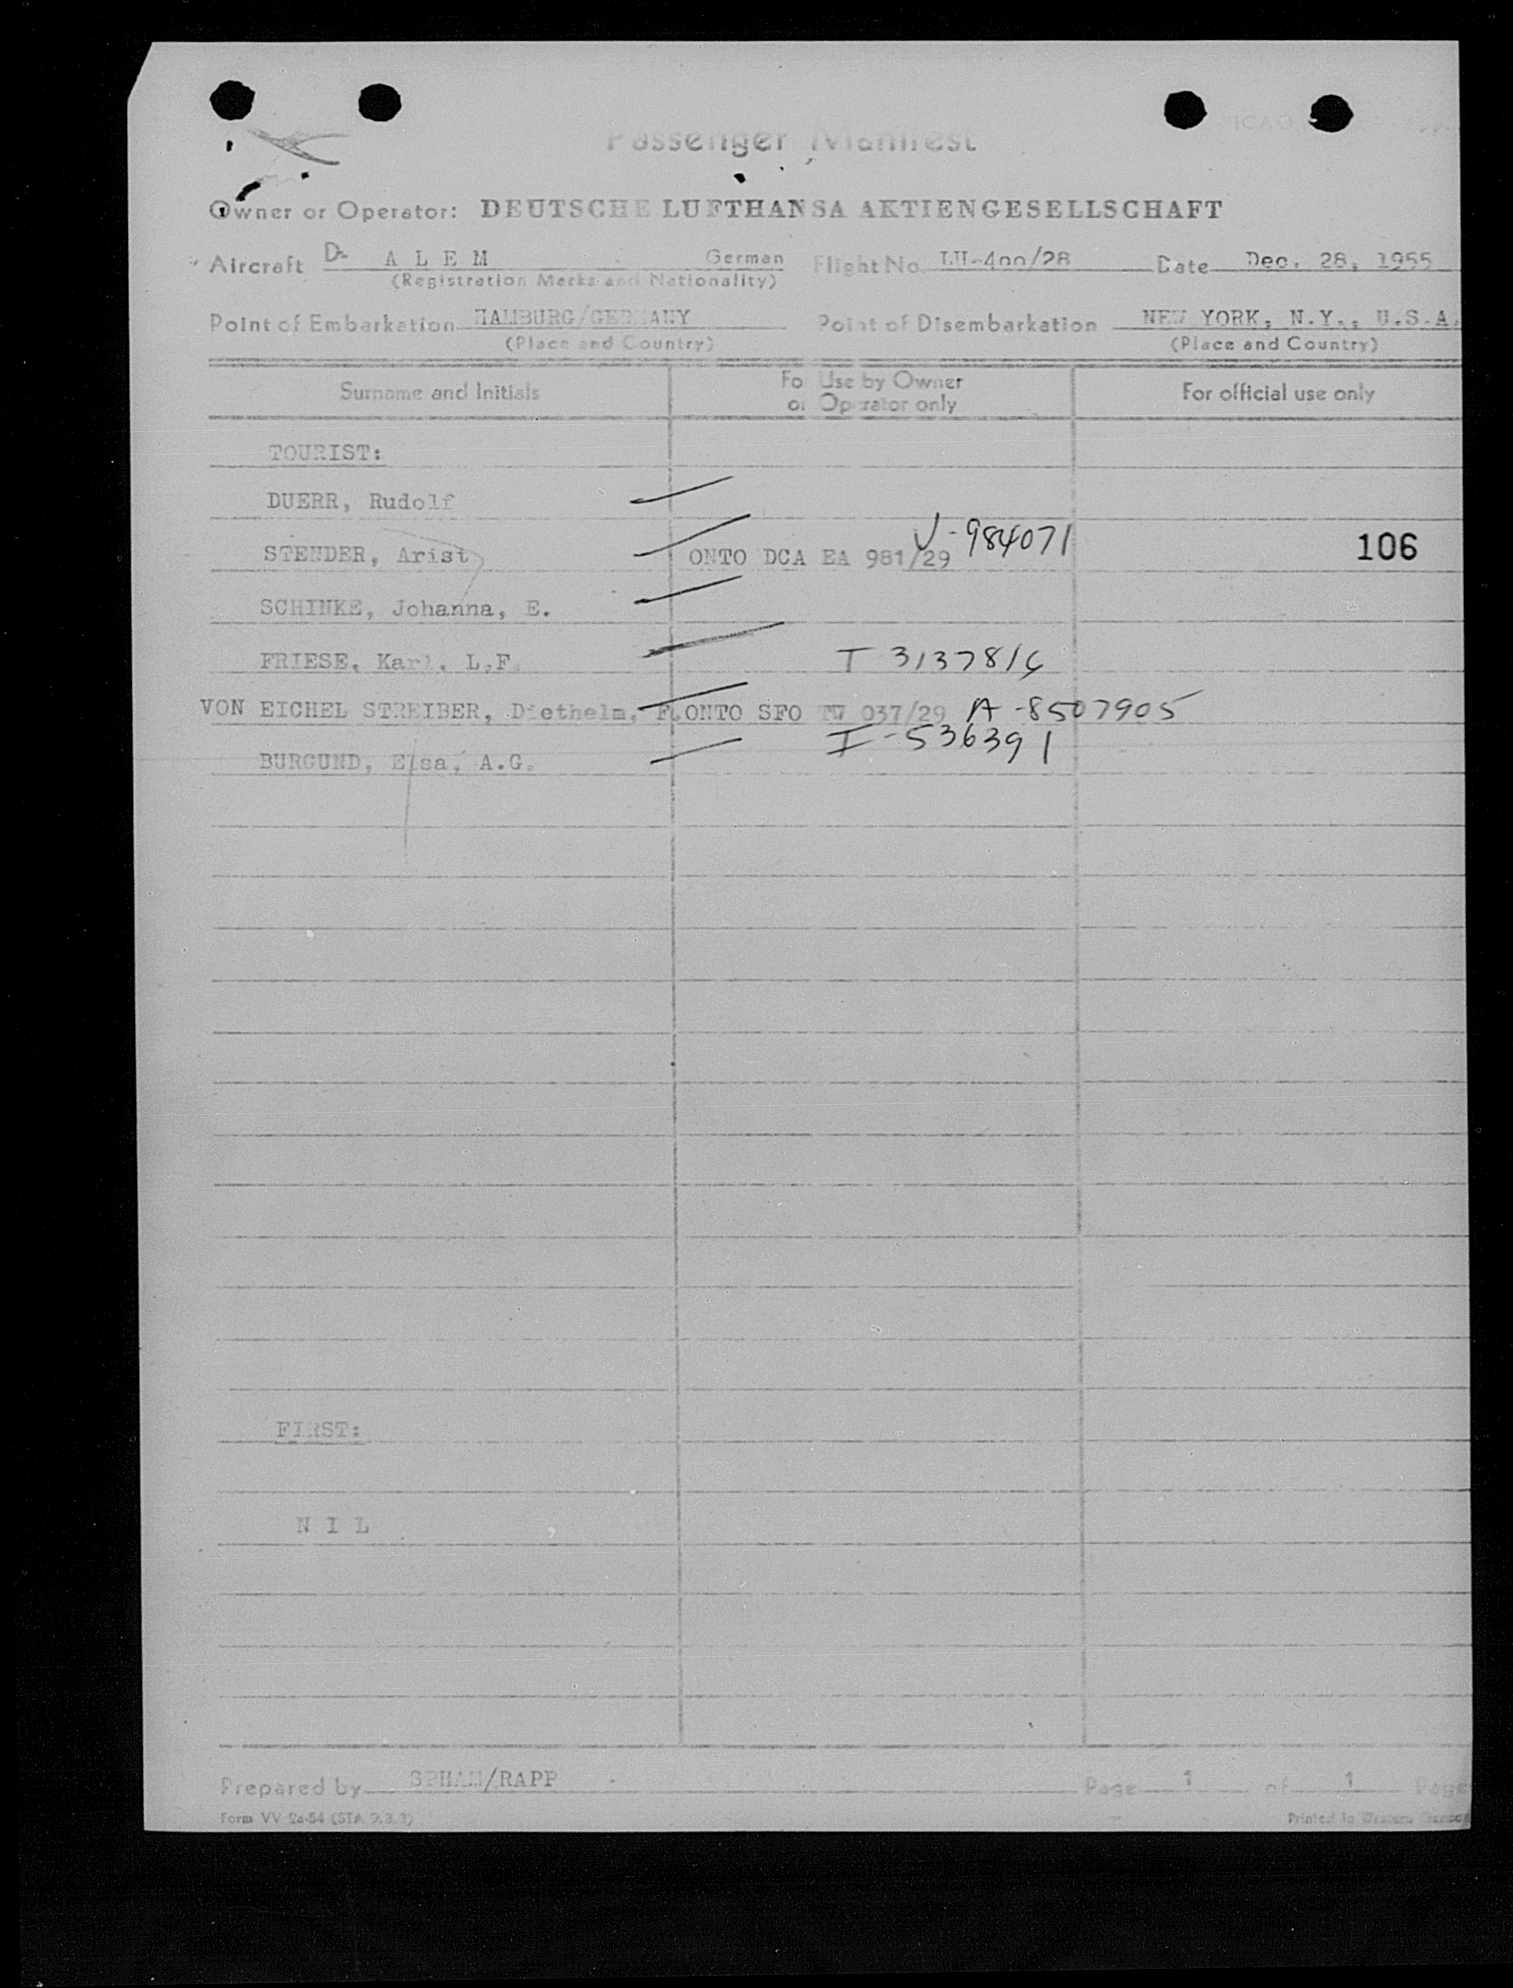 ICAO
Passenger Manifest
Owner or Operator: DEUTSCHE LUFTHANSA AKTIENGESELLSCHAFT
Aircraft D- A L E M German Flight No. LH-400/28 Date Dec. 28, 1955
(Registration Marks and Nationality)
Point of Embarkation HAMBURG/GERMANY Point of Disembarkation NEW YORK, N.Y., U.S.A.
(Place and Country) (Place and Country)
Surname and Initials For Use by Owner or Operator only For official use only
TOURIST:
DUERR, Rudolf
STENDER, Arist ONTO DCA EA 981/29 V-984071 106
SCHINKE, Johanna, E.
FRIESE, Karl, L.F. T 3137816
VON EICHEL STREIBER, Diethelm, F. ONTO SFO TW 037/29 A-8507905
BURGUND, Elsa, A.G. I-536391
FIRST:
N I L
Prepared by SPHAM/RAPP Page 1 of 1 Page
Form VV 2a-54 (STA 9.3.3) Printed in Western Germany